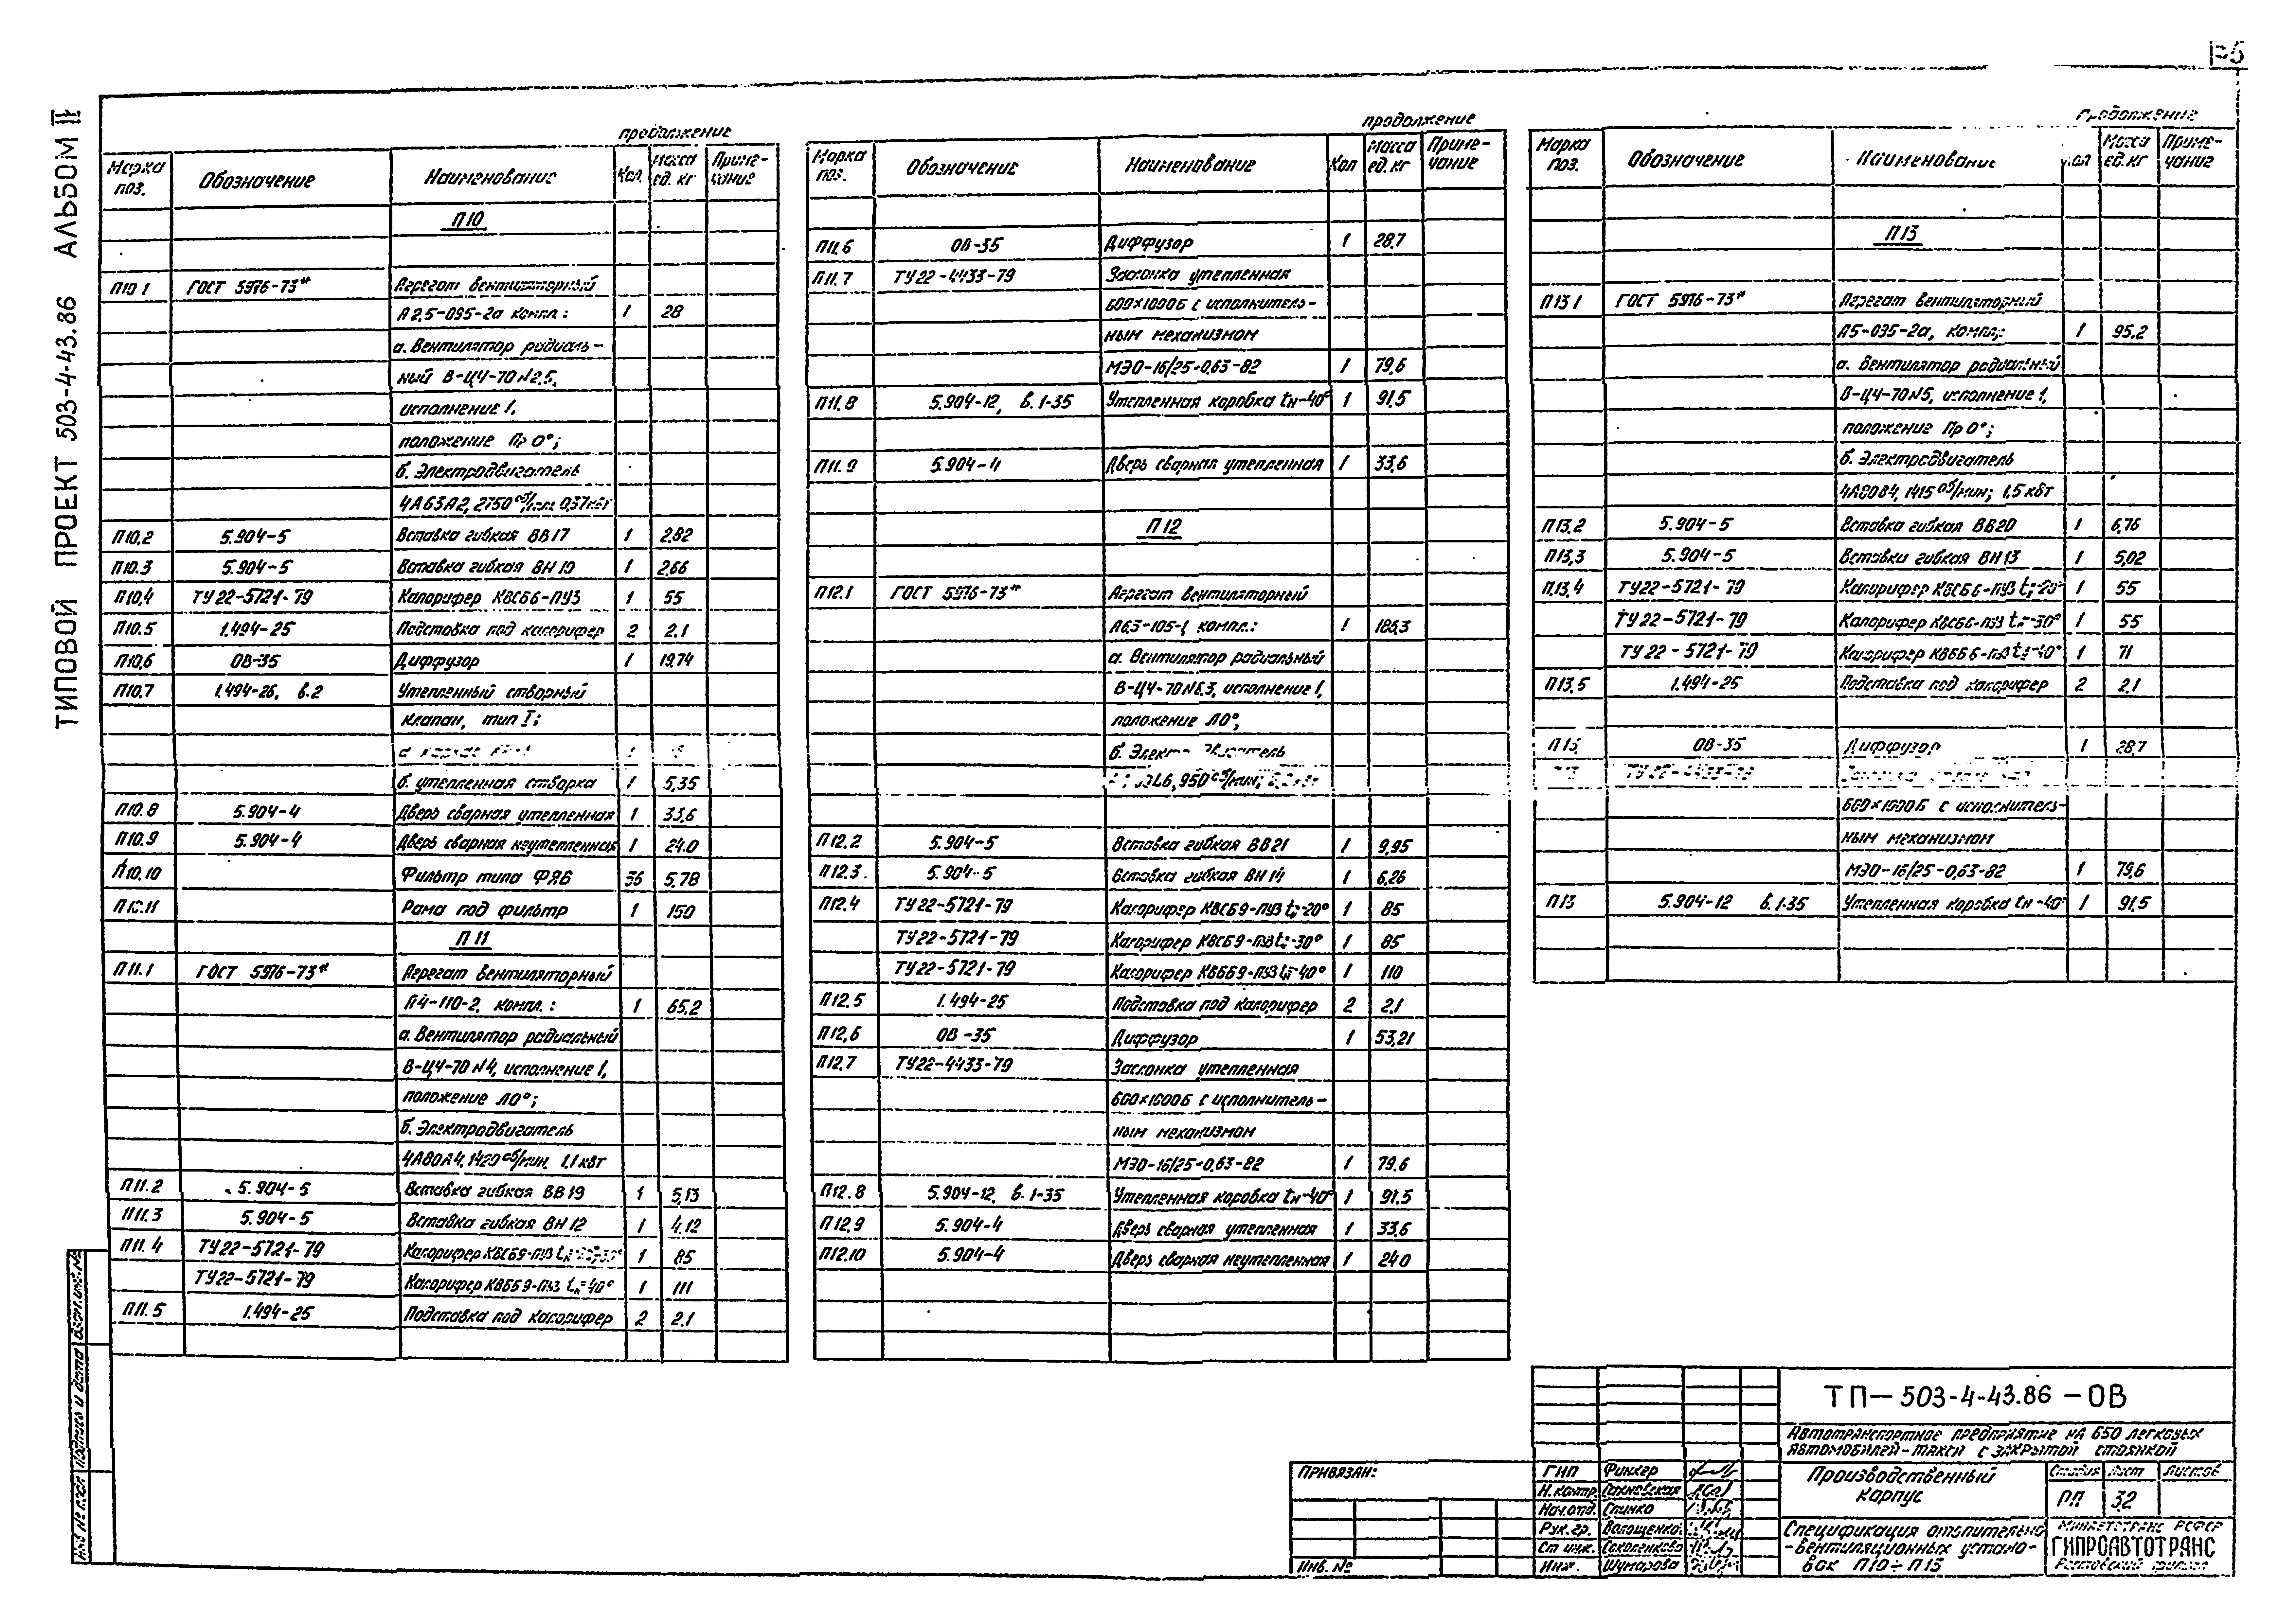 ТИПОВОЙ ПРОЕКТ 503-4-43.86 АЛЬБОМ II
продолжение
Марка поз. Обозначение Наименование Кол Масса ед. кг Приме-чание
П10
П10.1 ГОСТ 5976-73* Агрегат вентиляторный
А2,5-095-2а компл.: 1 28
а. Вентилятор радиаль-
ный В-Ц4-70 №2,5,
исполнение 1,
положение Пр 0°;
б. Электродвигатель
4А63А2, 2750 об/мин 0,37кВт
П10.2 5.904-5 Вставка гибкая ВВ17 1 2,82
П10.3 5.904-5 Вставка гибкая ВН10 1 2,66
П10.4 ТУ22-5721-79 Калорифер КВСБ6-ПУЗ 1 55
П10.5 1.494-25 Подставка под калорифер 2 2.1
П10.6 ОВ-35 Диффузор 1 19.74
П10.7 1.494-26, в.2 Утепленный створный
клапан, тип I;
а.
б. утепленная створка 1 5,35
П10.8 5.904-4 Дверь сварная утепленная 1 33,6
П10.9 5.904-4 Дверь сварная неутепленная 1 24.0
П10.10 Фильтр типа ФЯВ 36 5,78
П10.11 Рама под фильтр 1 150
П11
П11.1 ГОСТ 5976-73* Агрегат вентиляторный
А4-110-2, компл.: 1 65,2
а. Вентилятор радиальный
В-Ц4-70 №4, исполнение 1,
положение Л0°;
б. Электродвигатель
4А80А4, 1420 об/мин, 1,1 кВт
П11.2 5.904-5 Вставка гибкая ВВ19 1 5,13
П11.3 5.904-5 Вставка гибкая ВН12 1 4,12
П11.4 ТУ22-5721-79 Калорифер КВСБ9-ПУЗ 1 85
ТУ22-5721-79 Калорифер КВББ9-ПУЗ tн=-40° 1 111
П11.5 1.494-25 Подставка под калорифер 2 2.1
продолжение
Марка поз. Обозначение Наименование Кол Масса ед. кг Приме-чание
П11.6 ОВ-35 Диффузор 1 28,7
П11.7 ТУ22-4433-79 Заслонка утепленная
600×1000Б с исполнитель-
ным механизмом
МЭО-16/25-0,63-82 1 79,6
П11.8 5.904-12, в.1-35 Утепленная коробка tн-40° 1 91,5
П11.9 5.904-4 Дверь сварная утепленная 1 33,6
П12
П12.1 ГОСТ 5976-73* Агрегат вентиляторный
А6,3-105-1, компл.: 1 186,3
а. Вентилятор радиальный
В-Ц4-70 №6,3, исполнение 1,
положение Л0°,
б. Электродвигатель
950 об/мин;
П12.2 5.904-5 Вставка гибкая ВВ21 1 9,95
П12.3 5.904-5 Вставка гибкая ВН14 1 6,26
П12.4 ТУ22-5721-79 Калорифер КВСБ9-ПУЗ tн=-20° 1 85
ТУ22-5721-79 Калорифер КВСБ9-ПУЗ tн=-30° 1 85
ТУ22-5721-79 Калорифер КВББ9-ПУЗ tн=-40° 1 110
П12.5 1.494-25 Подставка под калорифер 2 2,1
П12.6 ОВ-35 Диффузор 1 53,21
П12.7 ТУ22-4433-79 Заслонка утепленная
600×1000Б с исполнитель-
ным механизмом
МЭО-16/25-0,63-82 1 79.6
П12.8 5.904-12, в.1-35 Утепленная коробка tн-40° 1 91.5
П12.9 5.904-4 Дверь сварная утепленная 1 33.6
П12.10 5.904-4 Дверь сварная неутепленная 1 24.0
продолжение
Марка поз. Обозначение Наименование кол Масса ед. кг Приме-чание
П13
П13.1 ГОСТ 5976-73* Агрегат вентиляторный
А5-095-2а, компл.: 1 95.2
а. Вентилятор радиальный
В-Ц4-70 №5, исполнение 1,
положение Пр 0°;
б. Электродвигатель
4А80В4, 1415 об/мин; 1,5 кВт
П13.2 5.904-5 Вставка гибкая ВВ20 1 6,76
П13.3 5.904-5 Вставка гибкая ВН13 1 5,02
П13.4 ТУ22-5721-79 Калорифер КВСБ6-ПУЗ tн=-20° 1 55
ТУ22-5721-79 Калорифер КВСБ6-ПУЗ tн=-30° 1 55
ТУ22-5721-79 Калорифер КВББ6-ПУЗ tн=-40° 1 71
П13.5 1.494-25 Подставка под калорифер 2 2,1
П13 ОВ-35 Диффузор 1 28,7
ТУ22-4433-79
600×1000Б с исполнитель-
ным механизмом
МЭО-16/25-0,63-82 1 79,6
П13 5.904-12 в.1-35 Утепленная коробка tн-40° 1 91,5
ТП-503-4-43.86-ОВ
Автотранспортное предприятие на 650 легковых
автомобилей-такси с закрытой стоянкой
ПРИВЯЗАН:
Инв. №
ГИП Финкер
Н. контр. Сахновская
Нач. отд. Спинко
Рук. гр. Волощенко
Ст инж. Соколенкова
Инж. Шумарова
Производственный
корпус
Стадия Лист Листов
РП 32
Спецификация отопительно
-вентиляционных устано-
вок П10÷П13
Минавтотранс РСФСР
ГИПРОАВТОТРАНС
Ростовский филиал
Инв № подл. Подпись и дата Взам. инв. №